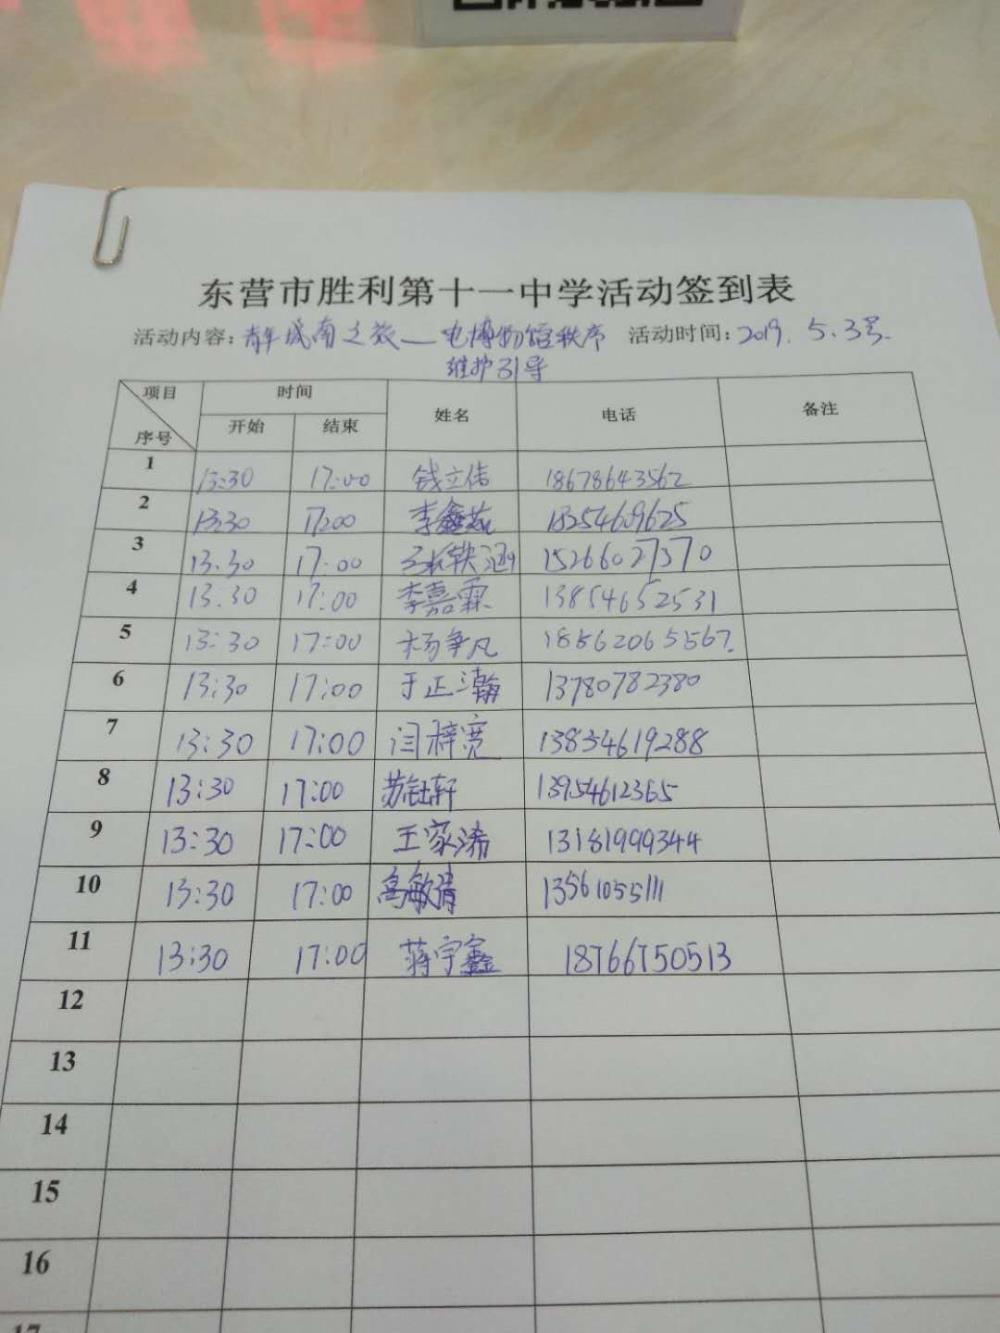 东营市胜利第十一中学活动签到表
活动内容: 青年城南之旅—电博物馆秩序 活动时间: 2019. 5. 3号.
维护引导
项目 时间 姓名 电话 备注
序号 开始 结束
1 13:30 17:00 钱立伟 18678643562
2 13:30 17:00 李鑫 18254609625
3 13.30 17:00 轶涵 15266027370
4 13.30 17:00 李嘉霖 13854652531
5 13:30 17:00 杨争凡 18562065567.
6 13:30 17:00 于正瀚 13780782380
7 13:30 17:00 闫梓宽 13854619288
8 13:30 17:00 苏钰轩 13954612365
9 13:30 17:00 王家浠 13181999344
10 13:30 17:00 高敏清 13561055111
11 13:30 17:00 蒋宇鑫 18766750513
12
13
14
15
16
17